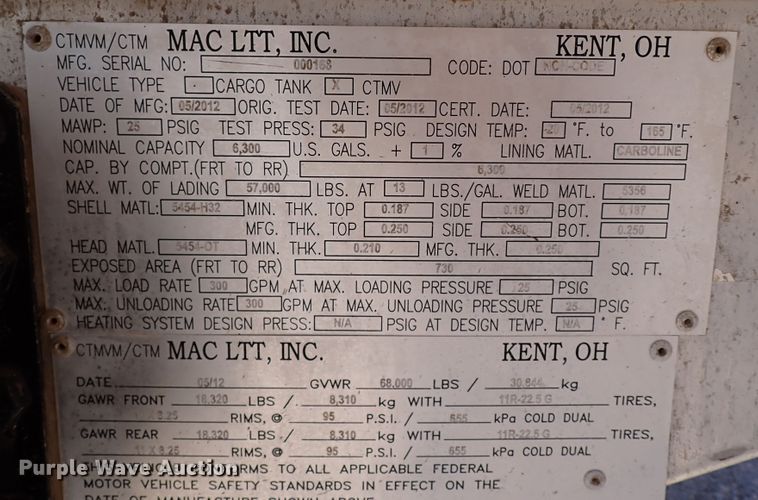 CTMVM/CTM MAC LTT, INC. KENT, OH
MFG. SERIAL NO: 000168 CODE: DOT NON-CODE
VEHICLE TYPE CARGO TANK X CTMV
DATE OF MFG: 05/2012 ORIG. TEST DATE: 05/2012 CERT. DATE: 05/2012
MAWP: 25 PSIG TEST PRESS: 34 PSIG DESIGN TEMP: -20 °F. to 165 °F.
NOMINAL CAPACITY 6,300 U.S. GALS. + 1 % LINING MATL. CARBOLINE
CAP. BY COMPT.(FRT TO RR) 6,300
MAX. WT. OF LADING 57,000 LBS. AT 13 LBS./GAL. WELD MATL. 5356
SHELL MATL: 5454-H32 MIN. THK. TOP 0.187 SIDE 0.187 BOT. 0.187
MFG. THK. TOP 0.250 SIDE 0.250 BOT. 0.250
HEAD MATL. 5454-OT MIN. THK. 0.210 MFG. THK. 0.250
EXPOSED AREA (FRT TO RR) 730 SQ. FT.
MAX. LOAD RATE 300 GPM AT MAX. LOADING PRESSURE 25 PSIG
MAX. UNLOADING RATE 300 GPM AT MAX. UNLOADING PRESSURE 25 PSIG
HEATING SYSTEM DESIGN PRESS: N/A PSIG AT DESIGN TEMP. N/A ° F.
CTMVM/CTM MAC LTT, INC. KENT, OH
DATE 05/12 GVWR 68,000 LBS / 30,844 kg
GAWR FRONT 18,320 LBS / 8,310 kg WITH 11R-22.5 G TIRES,
X 8.25 RIMS, @ 95 P.S.I. / 655 kPa COLD DUAL
GAWR REAR 18,320 LBS / 8,310 kg WITH 11R-22.5 G TIRES,
X 8.25 RIMS, @ 95 P.S.I. / 655 kPa COLD DUAL
TO ALL APPLICABLE FEDERAL
MOTOR VEHICLE SAFETY STANDARDS IN EFFECT ON THE
DATE OF MANUFACTURE SHOWN ABOVE
Purple Wave Auction